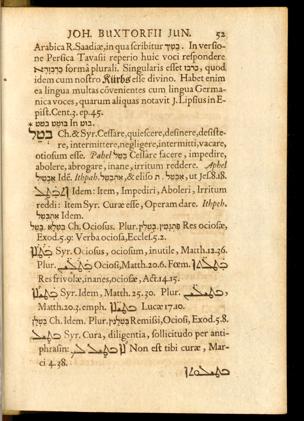 JOH. BUXTORFII JUN. 52
Arabica R. Saadiæ, in qua scribitur בטיך. In versio-
ne Persica Tavasii reperio huic voci respondere
formâ plurali. Singularis esset כרבו, quod
idem cum nostro Kürbs esse divino. Habet enim
ea lingua multas cõvenientes cum lingua Germa-
nica voces, quarum aliquas notavit J. Lipsius in E-
pist. Cent. 3. ep. 45.
In בוט
בטל Ch. & Syr. Cessare, quiescere, desinere, desiste-
re, intermittere, negligere, intermitti, vacare,
otiosum esse. Pahel בטל Cessare facere, impedire,
abolere, abrogare, inane, irritum reddere. Aphel
Idē. Ithpah. & eliso ת, ut Jes. 8. 18.
Idem: Item, Impediri, Aboleri, Irritum
reddi: Item Syr. Curæ esse, Operam dare. Ithpeh.
Idem.
Ch. Otiosus. Plur. בטלין Res otiosæ,
Exod. 5. 9: Verba otiosa, Eccles. 5. 2.
Syr. Otiosus, otiosum, inutile, Matth. 12. 36.
Plur. Otiosi, Matth. 20. 6. Fœm.
Res frivolæ, inanes, otiosæ, Act. 14. 15.
Syr. Idem, Matth. 25. 30. Plur.
Matth. 20. 3. emph. Lucæ 17. 10.
בטלן Ch. Idem. Plur. בטלנין Remissi, Otiosi, Exod. 5. 8.
Syr. Cura, diligentia, sollicitudo per anti-
phrasin: Non est tibi curæ, Mar-
ci 4. 38.